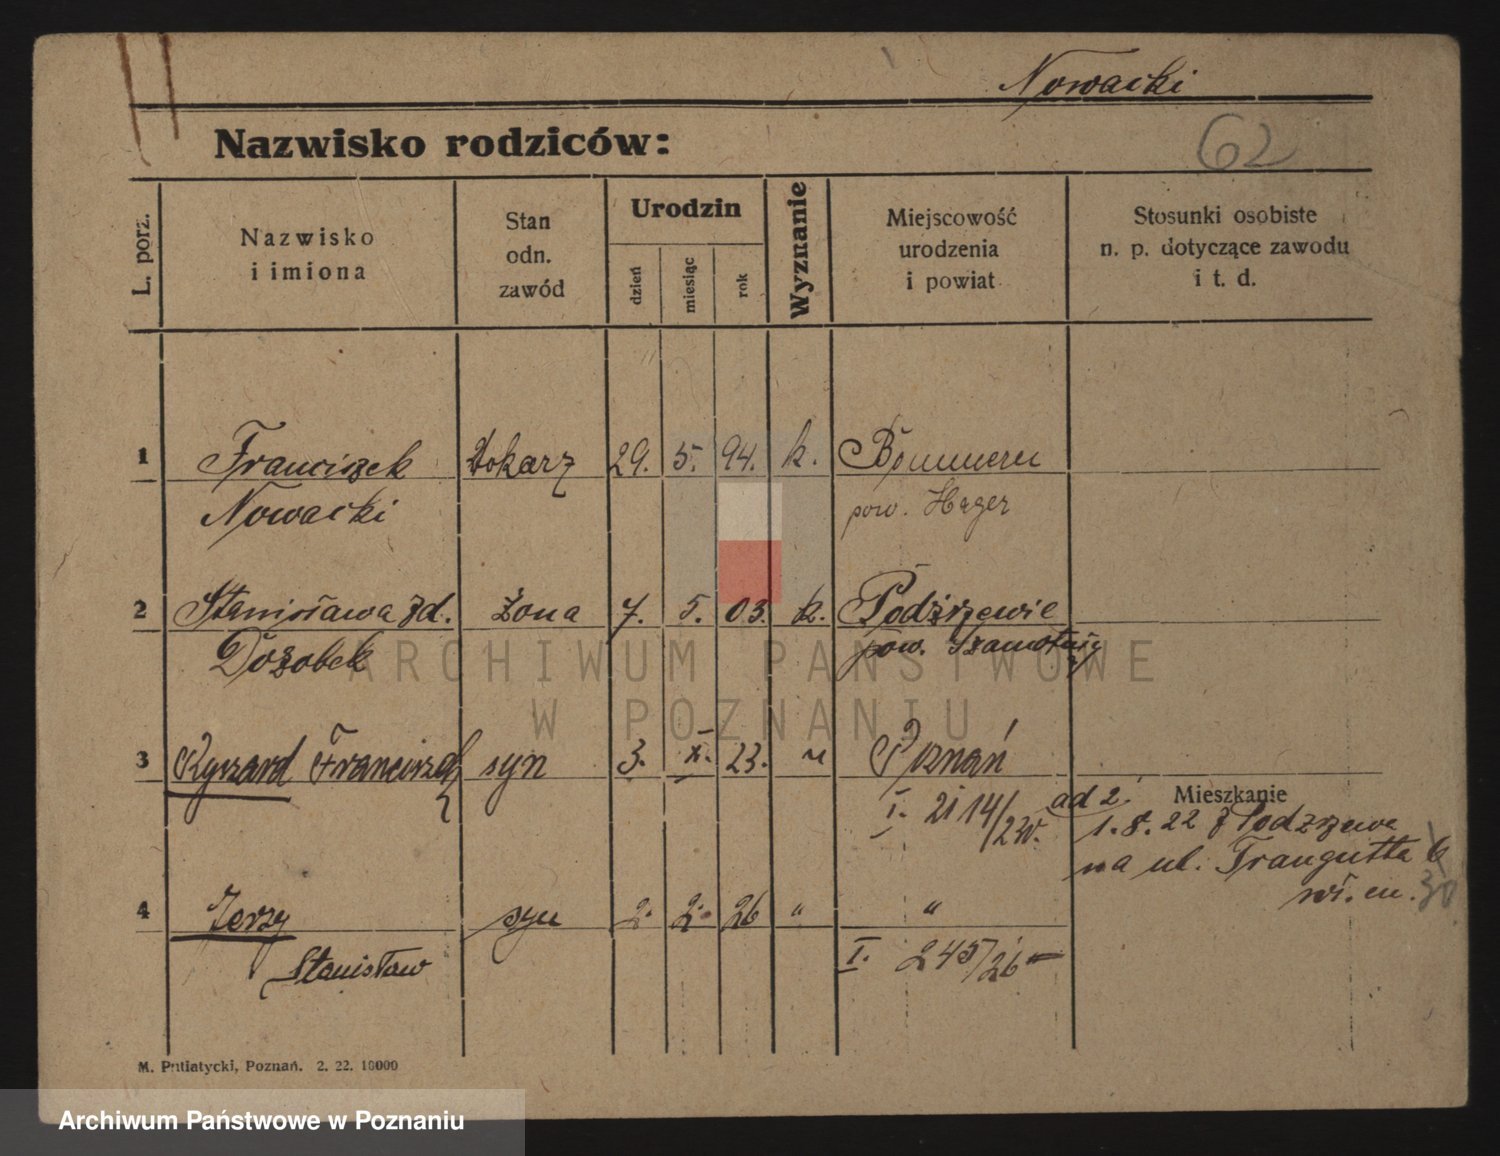 Nowacki
Nazwisko rodziców:
62
L. porz.
Nazwisko
i imiona
Stan
odn.
zawód
Urodzin
dzień
miesiąc
rok
Wyznanie
Miejscowość
urodzenia
i powiat
Stosunki osobiste
n. p. dotyczące zawodu
i t. d.
1 Franciszek tokarz 29. 5. 94. k.
Nowacki pow. Hagen
2 Stanisława zd. żona 7. 5. 03. k. Podrzewie
pow. Szamotuły
3 Ryszard Franciszek syn 3. X. 23. " Poznań
I. 2114/23
ad 2. Mieszkanie
1. 8. 22 z Podrzewa
na ul. Traugutta
30
4 Jerzy syn 2. 2. 26 " "
Stanisław I. 245/26
ARCHIWUM PAŃSTWOWE
W POZNANIU
M. Putiatycki, Poznań. 2. 22. 10000
Archiwum Państwowe w Poznaniu